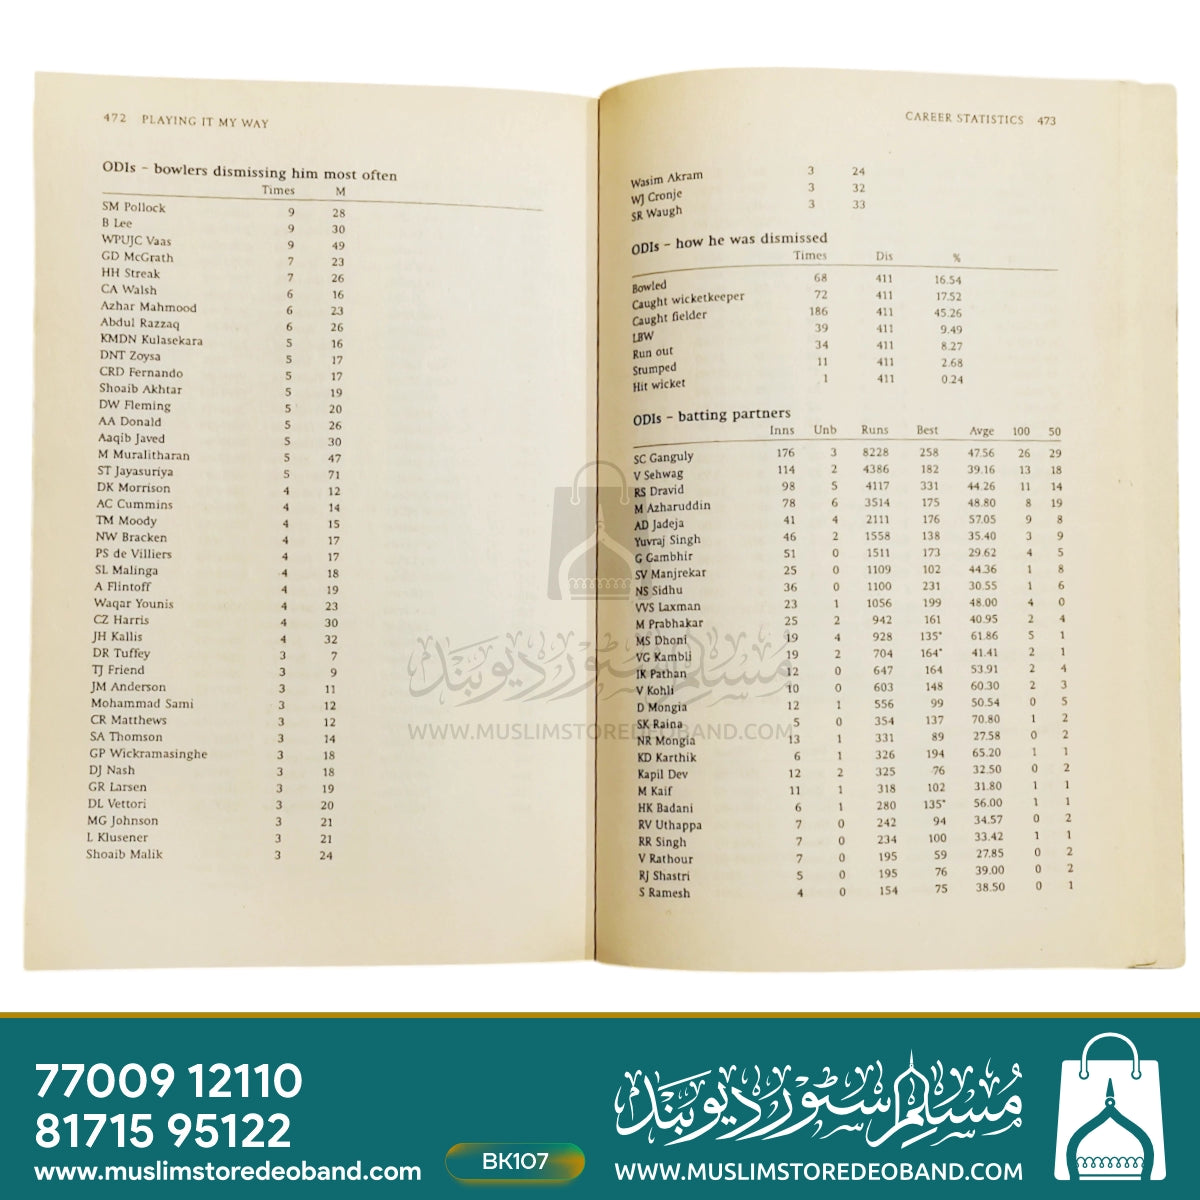 472 PLAYING IT MY WAY
ODIs – bowlers dismissing him most often
Times M
SM Pollock 9 28
B Lee 9 30
WPUJC Vaas 9 49
GD McGrath 7 23
HH Streak 7 26
CA Walsh 6 16
Azhar Mahmood 6 23
Abdul Razzaq 6 26
KMDN Kulasekara 5 16
DNT Zoysa 5 17
CRD Fernando 5 17
Shoaib Akhtar 5 19
DW Fleming 5 20
AA Donald 5 26
Aaqib Javed 5 30
M Muralitharan 5 47
ST Jayasuriya 5 71
DK Morrison 4 12
AC Cummins 4 14
TM Moody 4 15
NW Bracken 4 17
PS de Villiers 4 17
SL Malinga 4 18
A Flintoff 4 19
Waqar Younis 4 23
CZ Harris 4 30
JH Kallis 4 32
DR Tuffey 3 7
TJ Friend 3 9
JM Anderson 3 11
Mohammad Sami 3 12
CR Matthews 3 12
SA Thomson 3 14
GP Wickramasinghe 3 18
DJ Nash 3 18
GR Larsen 3 19
DL Vettori 3 20
MG Johnson 3 21
L Klusener 3 21
Shoaib Malik 3 24
CAREER STATISTICS 473
Wasim Akram 3 24
WJ Cronje 3 32
SR Waugh 3 33
ODIs – how he was dismissed
Times Dis %
Bowled 68 411 16.54
Caught wicketkeeper 72 411 17.52
Caught fielder 186 411 45.26
LBW 39 411 9.49
Run out 34 411 8.27
Stumped 11 411 2.68
Hit wicket 1 411 0.24
ODIs – batting partners
Inns Unb Runs Best Avge 100 50
SC Ganguly 176 3 8228 258 47.56 26 29
V Sehwag 114 2 4386 182 39.16 13 18
RS Dravid 98 5 4117 331 44.26 11 14
M Azharuddin 78 6 3514 175 48.80 8 19
AD Jadeja 41 4 2111 176 57.05 9 8
Yuvraj Singh 46 2 1558 138 35.40 3 9
G Gambhir 51 0 1511 173 29.62 4 5
SV Manjrekar 25 0 1109 102 44.36 1 8
NS Sidhu 36 0 1100 231 30.55 1 6
VVS Laxman 23 1 1056 199 48.00 4 0
M Prabhakar 25 2 942 161 40.95 2 4
MS Dhoni 19 4 928 135* 61.86 5 1
VG Kambli 19 2 704 164* 41.41 2 1
IK Pathan 12 0 647 164 53.91 2 4
V Kohli 10 0 603 148 60.30 2 3
D Mongia 12 1 556 99 50.54 0 5
SK Raina 5 0 354 137 70.80 1 2
NR Mongia 13 1 331 89 27.58 0 2
KD Karthik 6 1 326 194 65.20 1 1
Kapil Dev 12 2 325 76 32.50 0 2
M Kaif 11 1 318 102 31.80 1 1
HK Badani 6 1 280 135* 56.00 1 1
RV Uthappa 7 0 242 94 34.57 0 2
RR Singh 7 0 234 100 33.42 1 1
V Rathour 7 0 195 59 27.85 0 2
RJ Shastri 5 0 195 76 39.00 0 2
S Ramesh 4 0 154 75 38.50 0 1
مسلم سٹور دیوبند
WWW.MUSLIMSTOREDEOBAND.COM
77009 12110
81715 95122
www.muslimstoredeoband.com
BK107
مسلم سٹور دیوبند
WWW.MUSLIMSTOREDEOBAND.COM